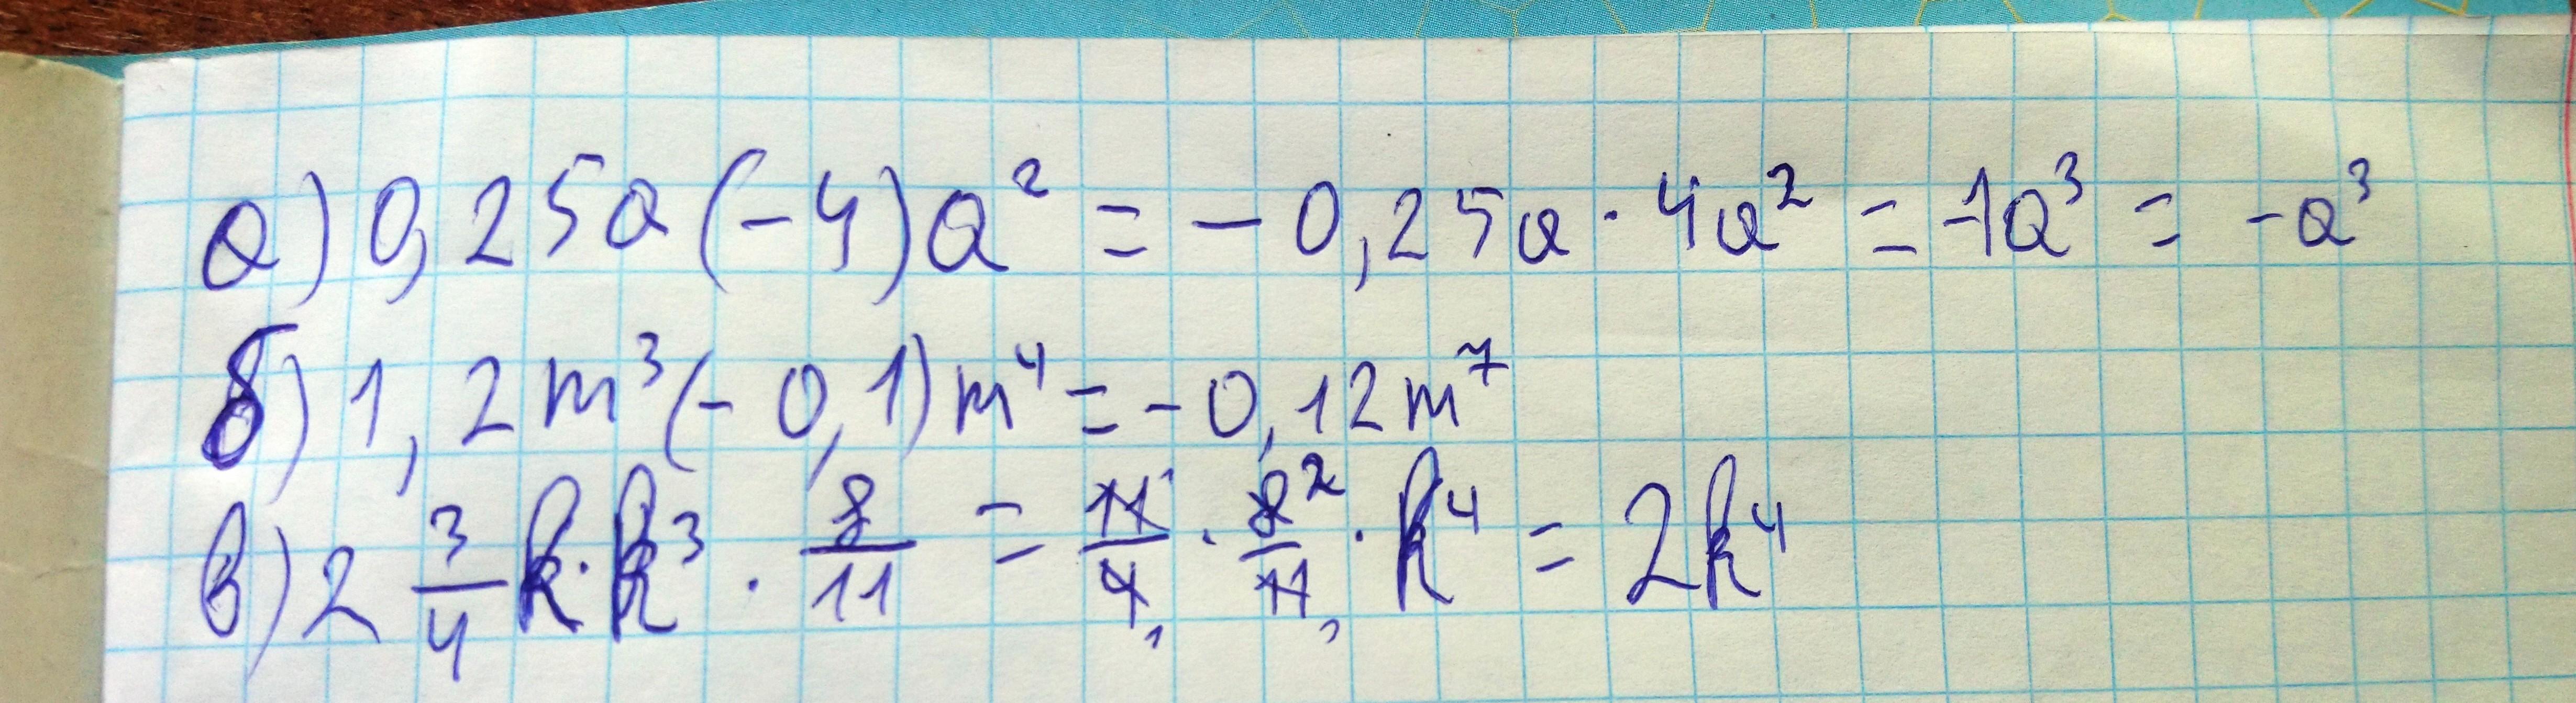 а) 0,25a(-4)a² = -0,25a · 4a² = -1a³ = -a³
б) 1,2m³(-0,1)m⁴ = -0,12m⁷
в) 2 3/4 k · k³ · 8/11 = 11/4 · 8/11 · k⁴ = 2k⁴